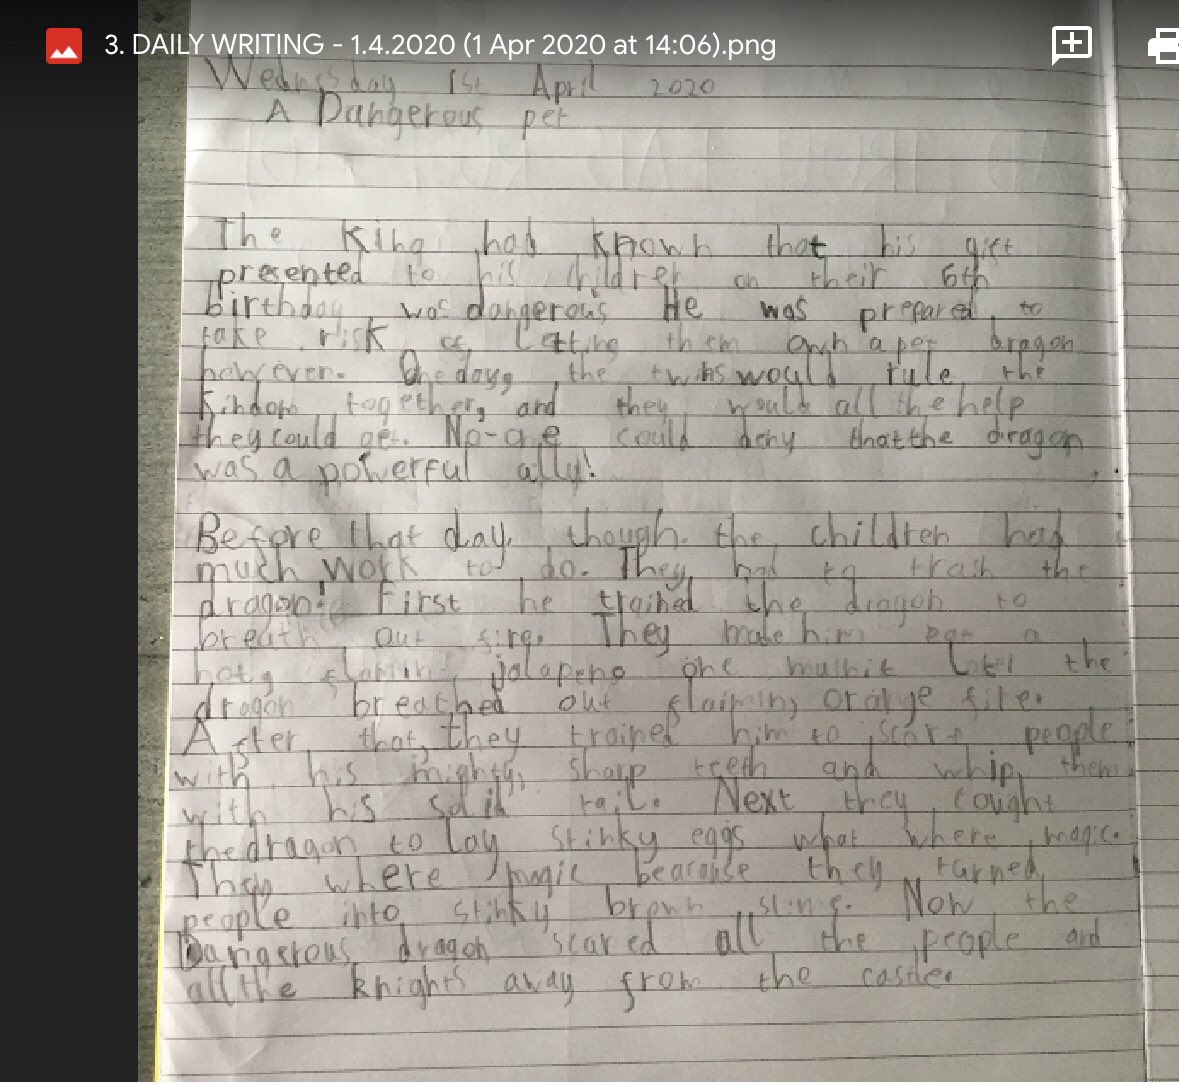 3. DAILY WRITING - 1.4.2020 (1 Apr 2020 at 14:06).png
Wednesday 1st April 2020
A Dangerous pet
The King had known that his gift
presented to his children on their 6th
birthday was dangerous He was prepared to
take risk of letting them own a pet dragon
however. One day, the twins would rule the
Kindom together, and they would all the help
they could get. No-one could deny that the dragon
was a powerful ally!
Before that day, though, the children had
much work to do. They had to train the
dragon! First he trained the dragon to
breath out fire. They made him eat a
hot, flamin jalapeno one munit later the
dragon breathed out flaiming orange fire.
After that, they trained him to scare people
with his mighty, sharp teeth and whip them
with his solid tail. Next they tought
the dragon to lay stinky eggs what where magic.
They where magic bearause they turned
people into stinky brown slime. Now the
Dangerous dragon scared all the people and
all the knights away from the castle.